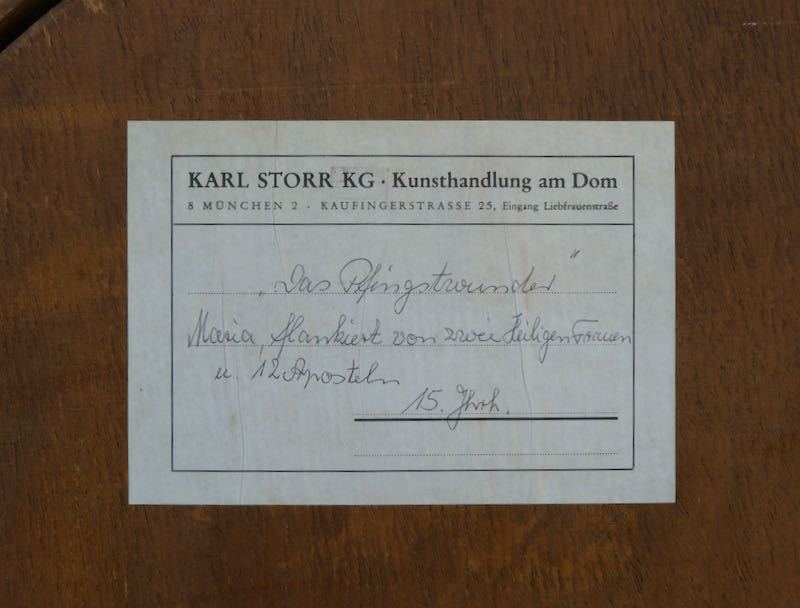 KARL STORR KG · Kunsthandlung am Dom
8 MÜNCHEN 2 · KAUFINGERSTRASSE 25, Eingang Liebfrauenstraße
„Das Pfingstwunder"
Maria, flankiert von zwei Heiligen Frauen
u. 12 Aposteln
15. Jhrh.